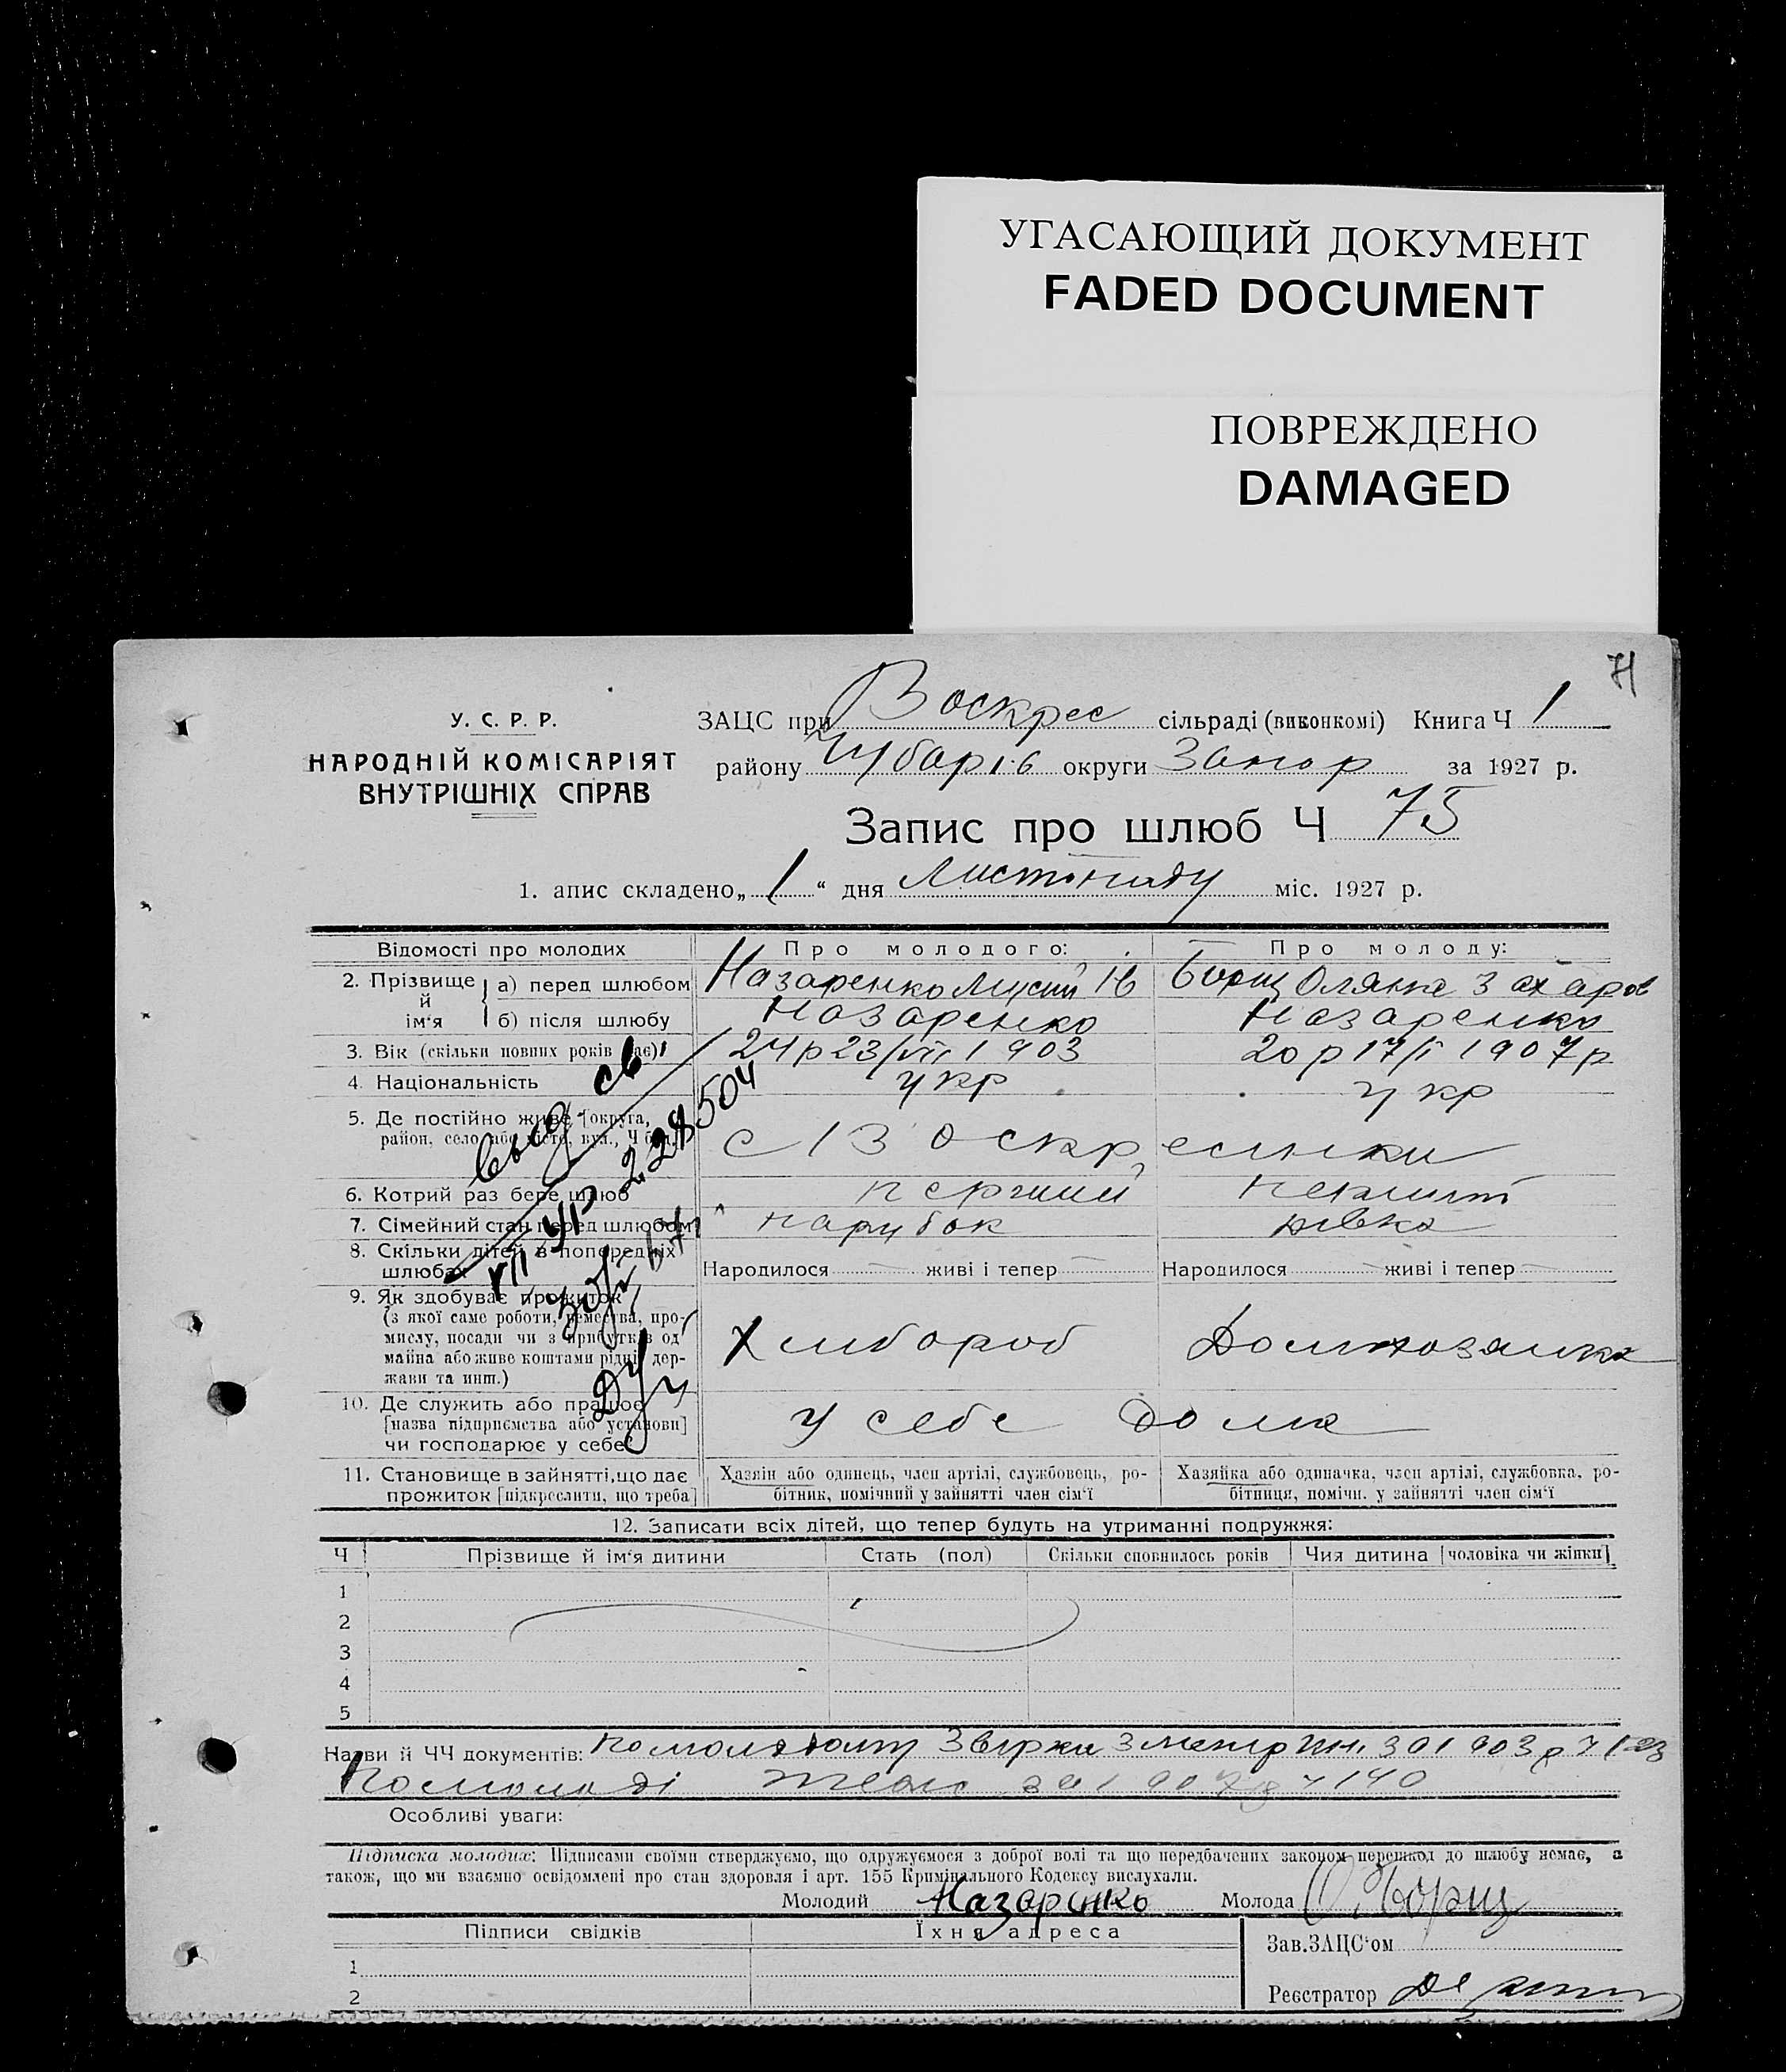 УГАСАЮЩИЙ ДОКУМЕНТ
FADED DOCUMENT
ПОВРЕЖДЕНО
DAMAGED
71
У. С. Р. Р.
НАРОДНІЙ КОМІСАРІЯТ
ВНУТРІШНІХ СПРАВ
ЗАЦС при Воскрес сільраді (виконкомі) Книга Ч 1
району Чубарів округи Запор за 1927 р.
Запис про шлюб Ч 75
1. апис складено „1“ дня Листопаду міс. 1927 р.
Відомості про молодих
Про молодого:
Про молоду:
2. Прізвище й ім'я
а) перед шлюбом Назаренко Ів Борщ Захаров
б) після шлюбу Назаренко Назаренко
3. Вік (скільки повних років має) 24 р 23/VII 1903 20 р 17/I 1907 р
4. Національність укр укр
5. Де постійно живе [округа, район, село або місто, вул., Ч буд.] с Воскресенки
6. Котрий раз бере шлюб перший
7. Сімейний стан перед шлюбом парубок дівка
8. Скільки дітей в попередніх шлюбах Народилося — живі і тепер — Народилося — живі і тепер —
9. Як здобуває прожиток
(з якої саме роботи, ремества, про-
мислу, посади чи з прибутків од
майна або живе коштами рідні, дер-
жави та инш.)
Хлібороб
10. Де служить або працює
[назва підприємства або установи]
чи господарює у себе
у себе дома
11. Становище в зайнятті, що дає
прожиток [підкреслити, що треба]
Хазяїн або одинець, член артілі, службовець, ро-
бітник, помічний у зайнятті член сім'ї
Хазяйка або одиначка, член артілі, службовка, ро-
бітниця, помічн. у зайнятті член сім'ї
228504
12. Записати всіх дітей, що тепер будуть на утриманні подружжя:
Ч Прізвище й ім'я дитини Стать (пол) Скільки сповнилось років Чия дитина [чоловіка чи жінки]
1
2
3
4
5
Назви й ЧЧ документів: за 1903 р
за 1907 р ч 140
Особливі уваги:
Підписка молодих: Підписами своїми стверджуємо, що одружуємося з доброї волі та що передбачених законом перешкод до шлюбу немає, а
також, що ми взаємно освідомлені про стан здоровля і арт. 155 Кримінального Кодексу вислухали.
Молодий Назаренко Молода О. Борщ
Підписи свідків Їхня адреса
1
2
Зав.ЗАЦС'ом
Реєстратор